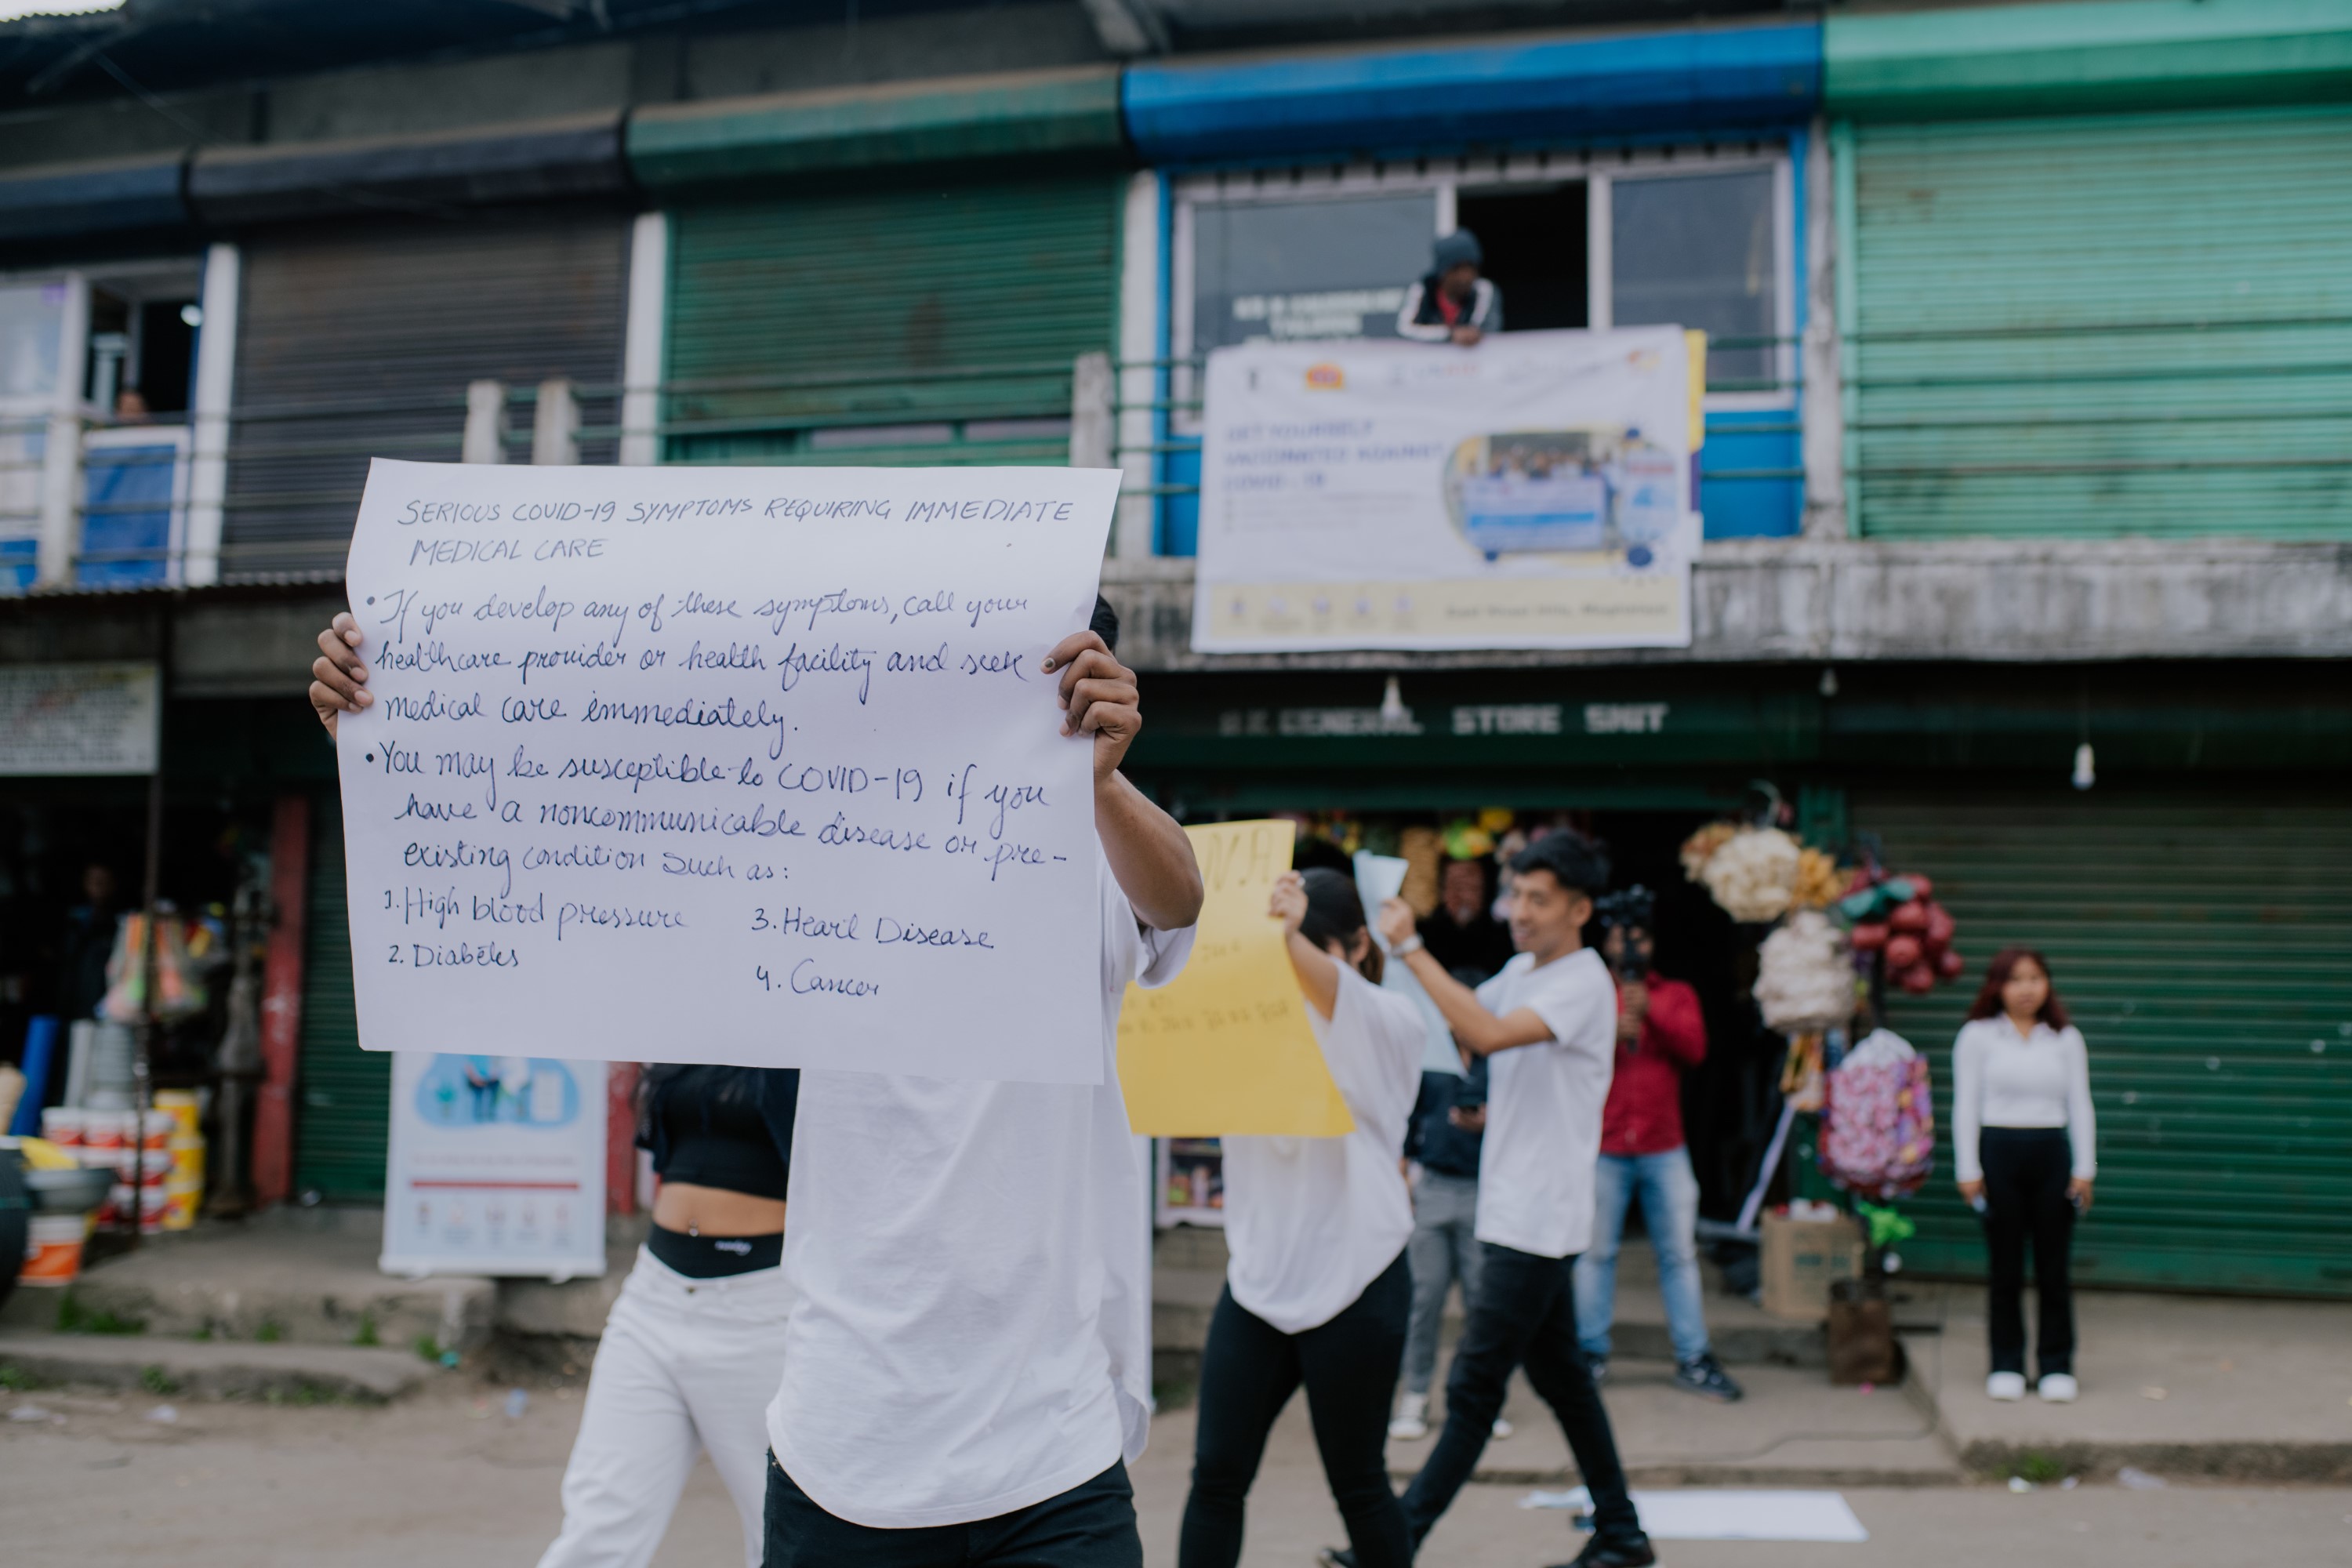 SERIOUS COVID-19 SYMPTOMS REQUIRING IMMEDIATE
MEDICAL CARE
• If you develop any of these symptoms, call your
healthcare provider or health facility and seek
medical care immediately.
• You may be susceptible to COVID-19 if you
have a noncommunicable disease or pre-
existing condition such as:
1. High blood pressure
2. Diabetes
3. Heart Disease
4. Cancer
GET YOURSELF
VACCINATED AGAINST
COVID-19
GENERAL STORE SMIT